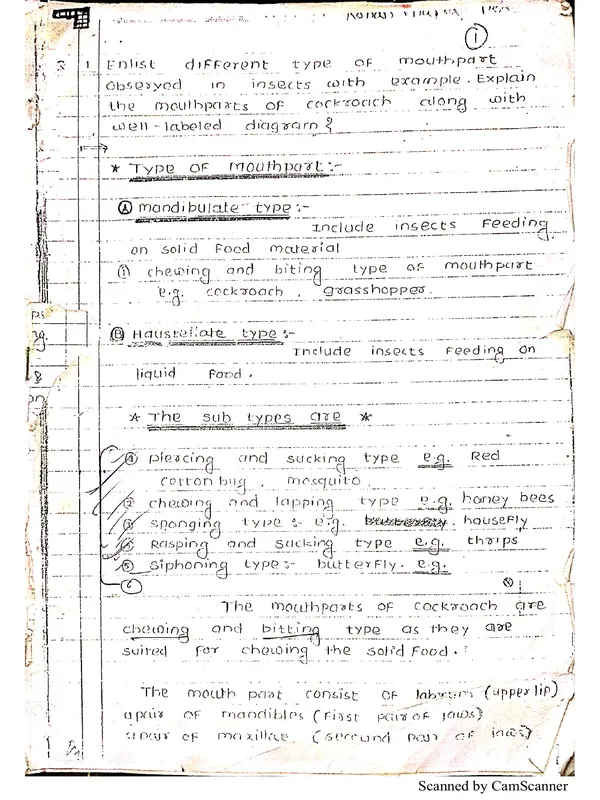 1
3 1 Enlist different type of mouthpart
observed in insects with example. Explain
the mouthparts of cockroach along with
well-labeled diagram?
* Type of mouthpart:-
A mandibulate type:-
Include insects Feeding
on solid Food material
1 chewing and biting type of mouthpart
e.g. cockroach, grasshopper.
B Haustellate type:-
Include insects Feeding on
liquid Food.
* The sub types are *
1 piercing and sucking type e.g. Red
cotton bug, mosquito
2 chewing and lapping type e.g. honey bees
3 sponging type:- e.g. housefly
4 Rasping and sucking type e.g. thrips
5 siphoning type:- butterfly. e.g.
6
The mouthparts of cockroach are
chewing and bitting type as they are
suited for chewing the solid Food.
The mouth part consist of labrum (upper lip)
a pair of mandibles (First pair of jaws)
a pair of maxillae (second pair of jaws)
Scanned by CamScanner